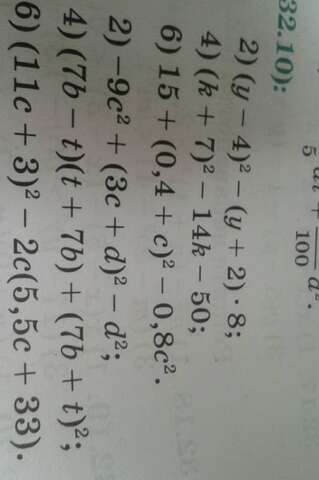 5 100 d².
32.10):
2) (y − 4)² − (y + 2) · 8;
4) (k + 7)² − 14k − 50;
6) 15 + (0,4 + c)² − 0,8c².
2) −9c² + (3c + d)² − d²;
4) (7b − t)(t + 7b) + (7b + t)²;
6) (11c + 3)² − 2c(5,5c + 33).